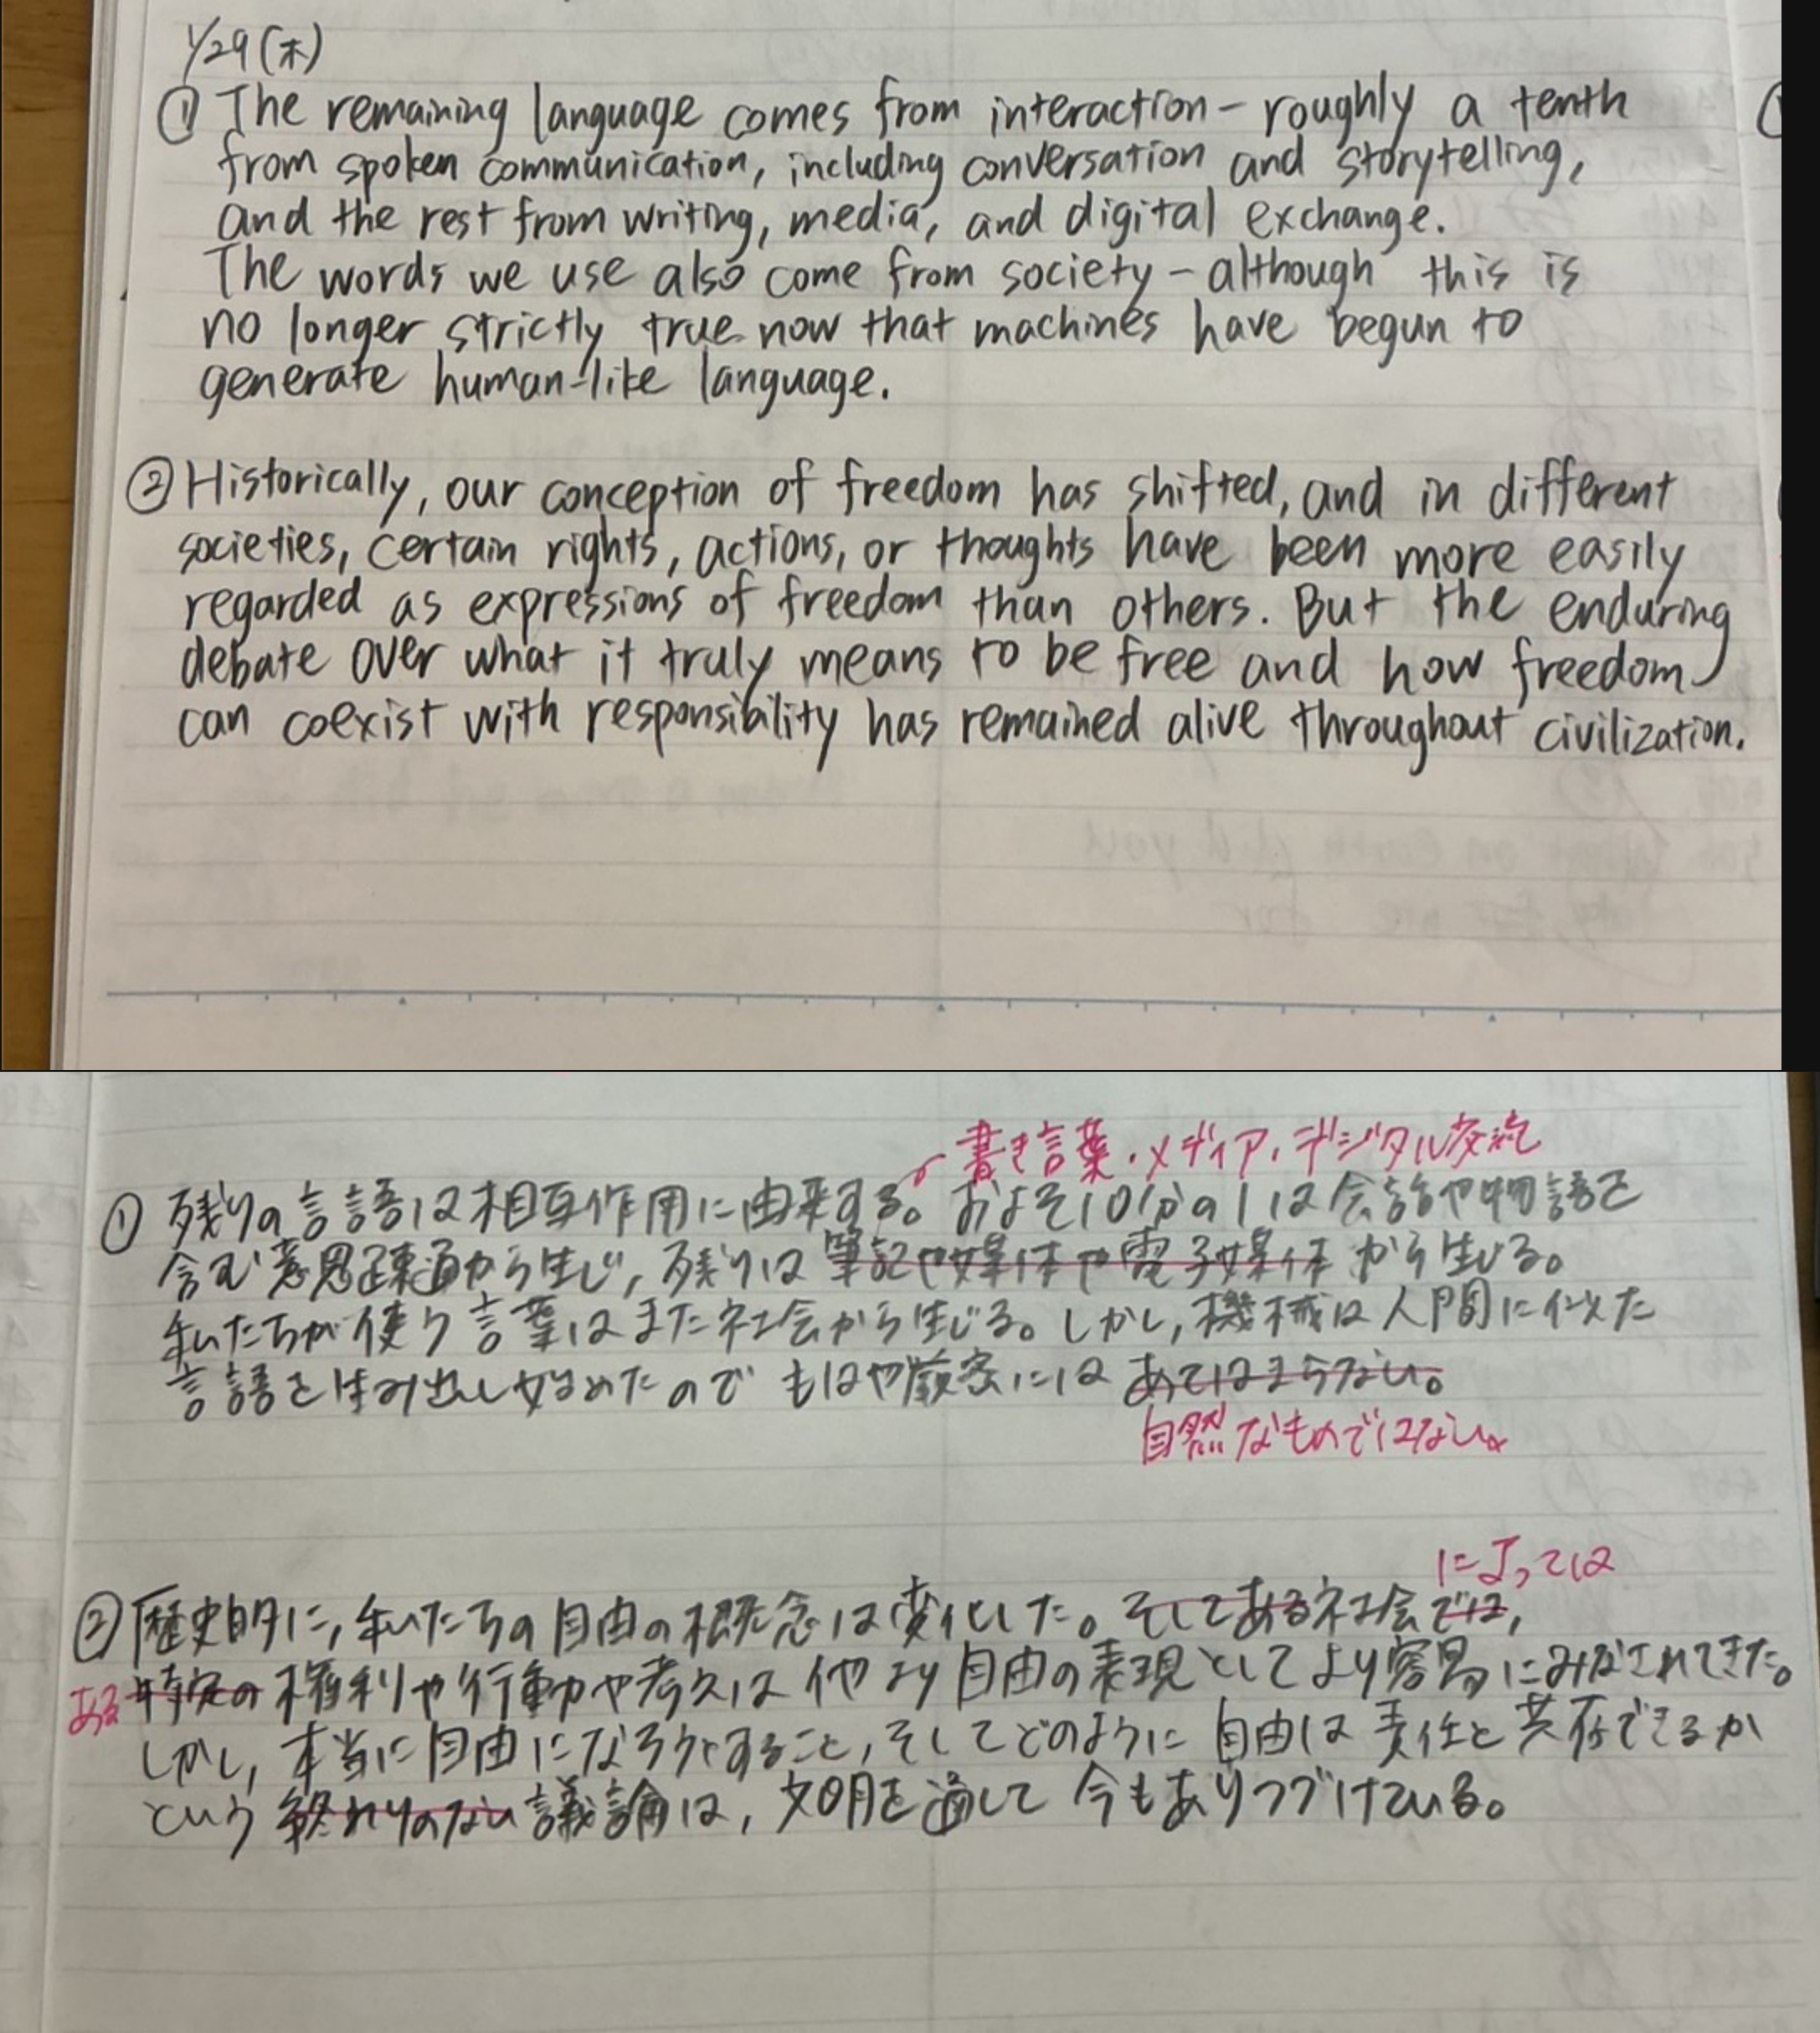 1/29(木)
① The remaining language comes from interaction - roughly a tenth
from spoken communication, including conversation and storytelling,
and the rest from writing, media, and digital exchange.
The words we use also come from society - although this is
no longer strictly true now that machines have begun to
generate human-like language.
② Historically, our conception of freedom has shifted, and in different
societies, certain rights, actions, or thoughts have been more easily
regarded as expressions of freedom than others. But the enduring
debate over what it truly means to be free and how freedom
can coexist with responsibility has remained alive throughout civilization.
書き言葉・メディア・デジタル交流
① 残りの言語は相互作用に由来する。およそ10分の1は会話や物語を
含む意思疎通から生じ, 残りは筆記や媒体や電子媒体から生じる。
私たちが使う言葉はまた社会から生じる。しかし, 機械は人間に似た
言語を生み出し始めたのでもはや厳密にはあてはまらない。
自然なものではない。
によっては
② 歴史的に, 私たちの自由の概念は変化した。そしてある社会では,
ある 特定の権利や行動や考えは他より自由の表現としてより容易にみなされてきた。
しかし, 本当に自由になろうとすること, そしてどのように自由は責任と共存できるか
という終わりのない議論は, 文明を通して今もありつづけている。